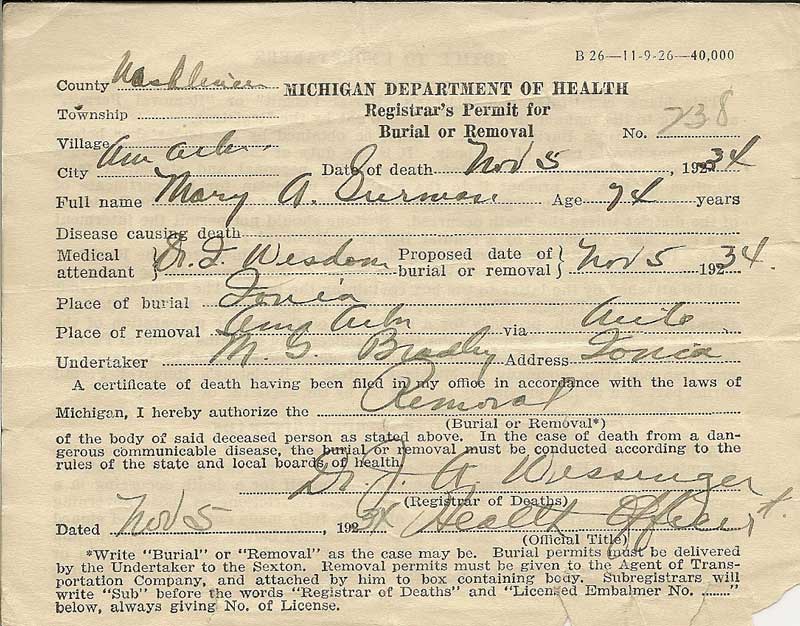 B 26—11-9-26—40,000
County Washtenaw MICHIGAN DEPARTMENT OF HEALTH
Township Registrar's Permit for
Burial or Removal No. 238
Village
City Ann Arbor Date of death Nov 5, 192 34
Full name Mary A. Age 74 years
Disease causing death
Medical attendant Dr. J. Wisdom Proposed date of burial or removal Nov 5 192 34.
Place of burial Ionia
Place of removal Ann Arbor via Auto
Undertaker M. G. Bradley Address Ionia
A certificate of death having been filed in my office in accordance with the laws of
Michigan, I hereby authorize the Removal
(Burial or Removal*)
of the body of said deceased person as stated above. In the case of death from a dan-
gerous communicable disease, the burial or removal must be conducted according to the
rules of the state and local boards of health.
Dr. J. A. Wessinger
(Registrar of Deaths)
Dated Nov 5, 192 34 Health Officer
(Official Title)
*Write "Burial" or "Removal" as the case may be. Burial permits must be delivered
by the Undertaker to the Sexton. Removal permits must be given to the Agent of Trans-
portation Company, and attached by him to box containing body. Subregistrars will
write "Sub" before the words "Registrar of Deaths" and "Licensed Embalmer No. ........"
below, always giving No. of License.